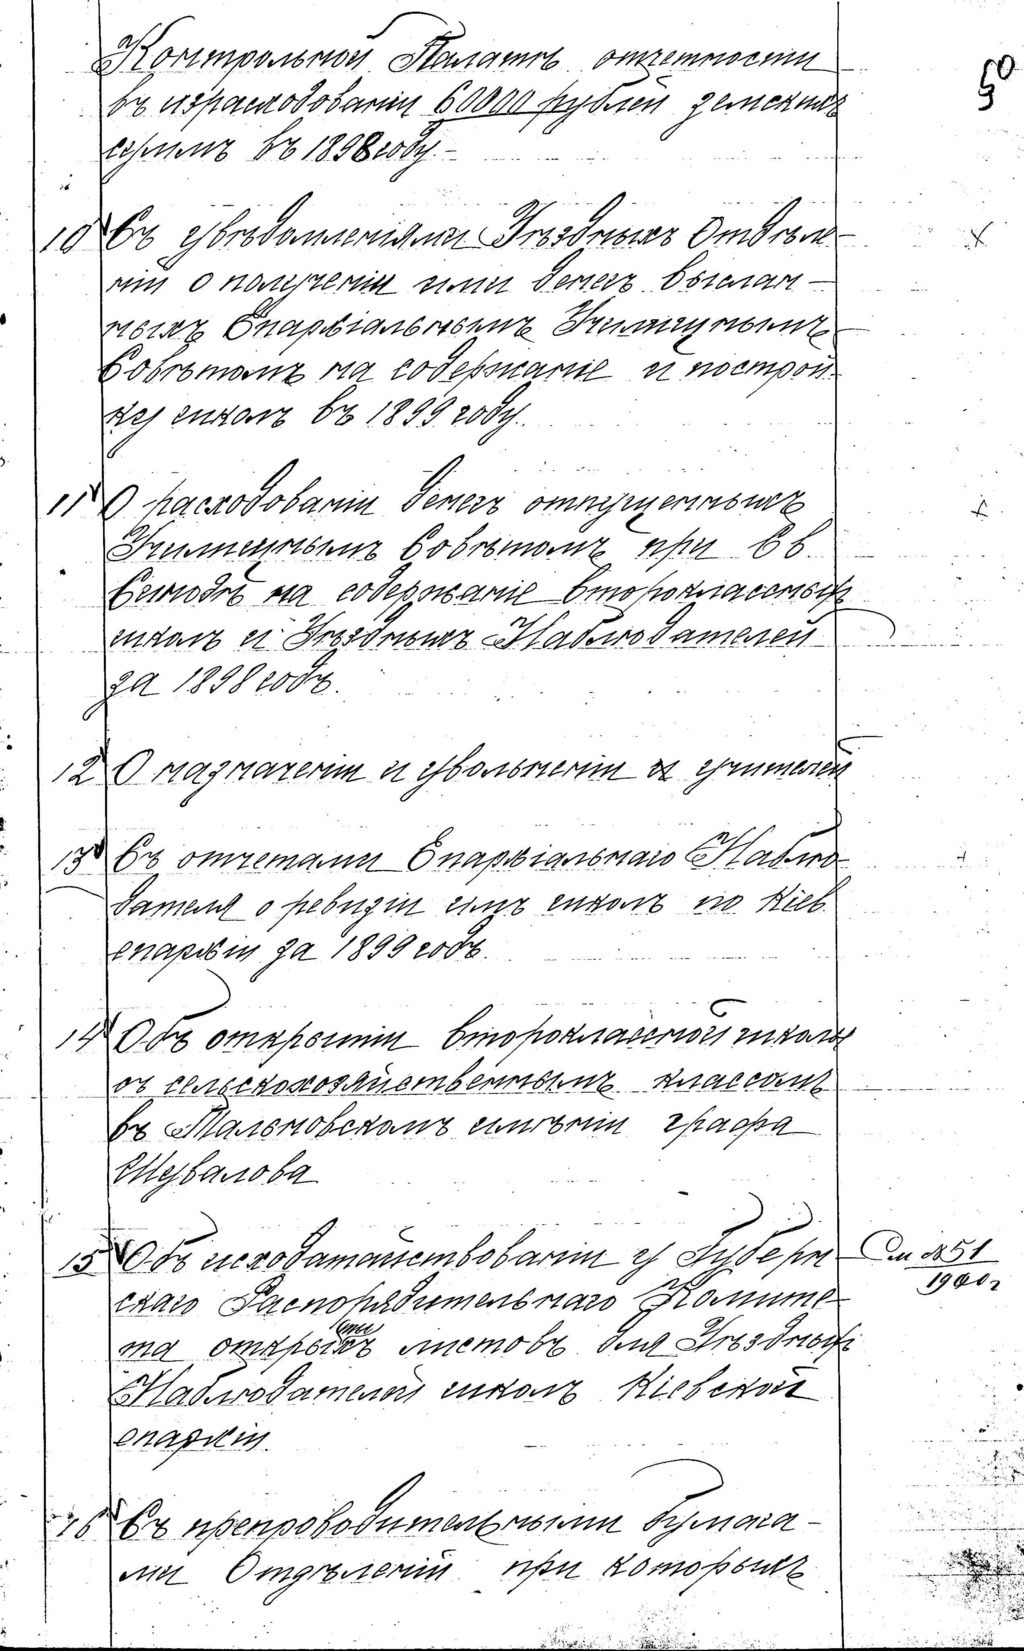 50
Контрольной Палатѣ отчетности
въ израсходованіи 60000 рублей земскимъ
суммъ въ 1898 году. –
10 Съ увѣдомленіями Уѣздныхъ Отдѣле-
ній о полученіи ими денегъ выслан-
ныхъ Епархіальнымъ Училищнымъ
Совѣтомъ на содержаніе и построй-
ку школъ въ 1899 году.
11 О расходованіи денегъ отпущенныхъ
Училищнымъ Совѣтомъ при Св.
Синодѣ на содержаніе второклассных
школъ и Уѣздныхъ Наблюдателей
за 1898 годъ.
12 О назначеніи и увольненіи учителей
13 Съ отчетами Епархіальнаго Наблю-
дателя о ревизіи имъ школъ по Кіев.
епархіи за 1899 годъ.
14 Объ открытіи второклассной школы
съ сельскохозяйственнымъ классомъ
въ Тальновскомъ имѣніи графа
Шувалова
15 Объ исходатайствованіи у Губерн- См №51
скаго Распорядительнаго Комите- 1900 г
та открытыхъ листовъ для Уѣздных
Наблюдателей школъ Кіевской
епархіи.
16 Съ препроводительными бумага-
ми Отдѣленій при которыхъ